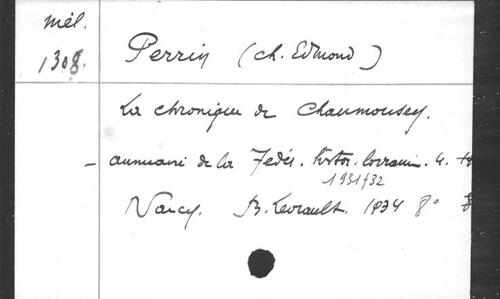 Mél.
1308.
Perrin (Ch. Edmond)
La chronique de Chaumousey.
– annuaire de la Fédér. histor. lorraine. 4.
1931/32
Nancy. B. Levrault. 1934 8°